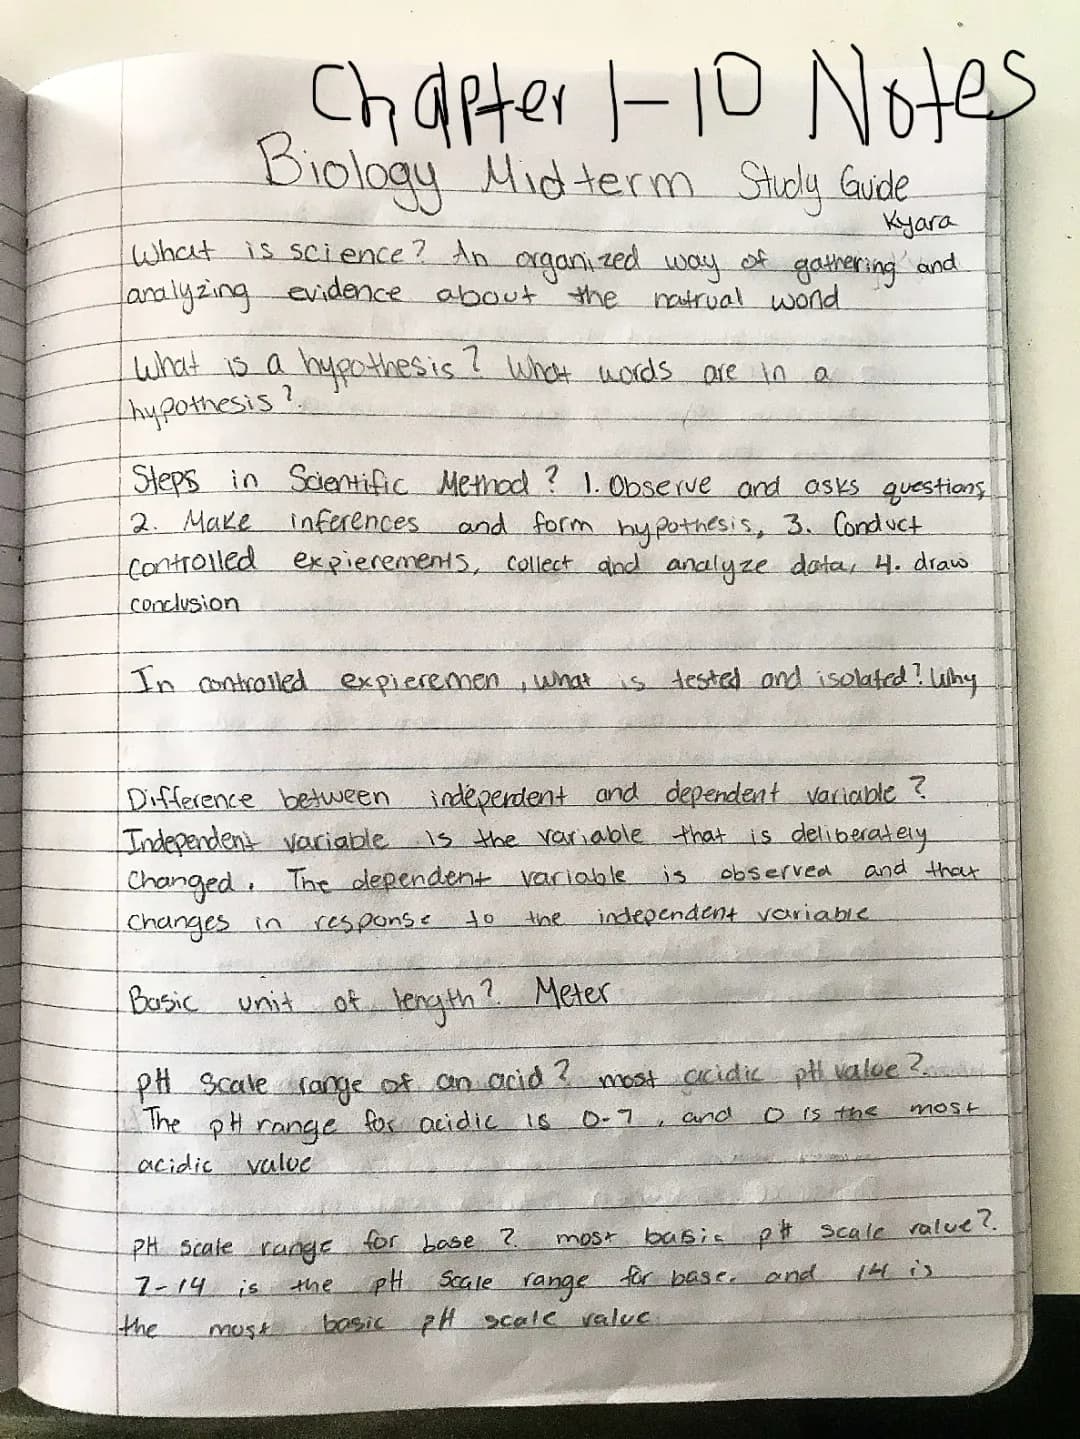 Chapter 1-10 Notes
Biology Midterm Study Guide
Kyara
What is science? An organized way of gathering and
analyzing evidence about the natrual world
What is a hypothesis? What words are in a
hypothesis?
Steps in Scientific Method? 1. Observe and asks questions
2. Make inferences and form hypothesis, 3. Conduct
controlled expierements, collect and analyze data, 4. draw
conclusion
In controlled expieremen, what is tested and isolated? Why
Difference between independent and dependent variable?
Independent variable is the variable that is deliberately
Changed. The dependent variable is observed and that
changes in response to the independent variable
Basic unit of length? Meter
pH Scale range of an acid? most acidic pH value?
The pH range for acidic is 0-7, and 0 is the most
acidic value
pH scale range for base? most basic pH scale value?
7-14 is the pH Scale range for base. and 14 is
the most basic pH scale value